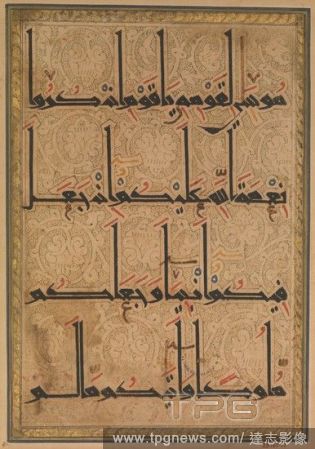 موسى لقومه يقوم اذكروا
نعمة الله عليكم اذ جعل
فيكم انبيا وجعلكم
ملوكا واتيكم ما لم
TPG
www.tpgnews.com/ 達志影像